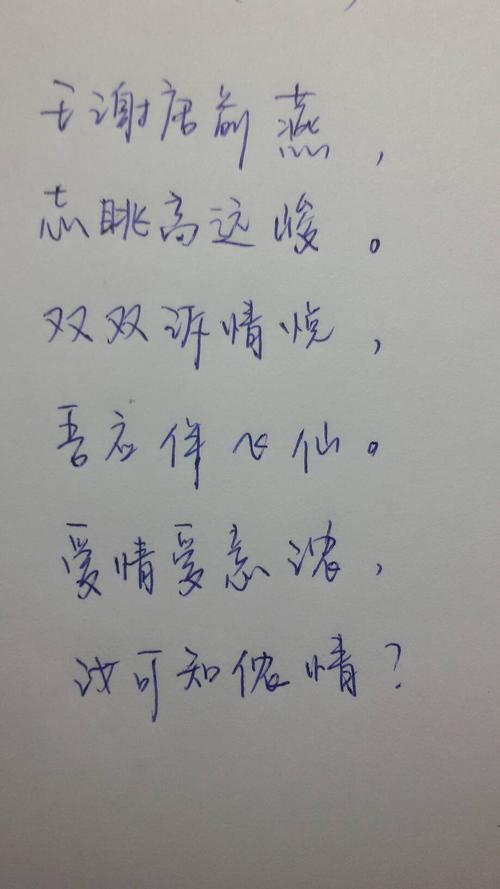 王谢唐前燕，
志眺高远峻。
双双诉情悦，
吾应伴飞仙。
爱情爱意浓，
汝可知侬情？